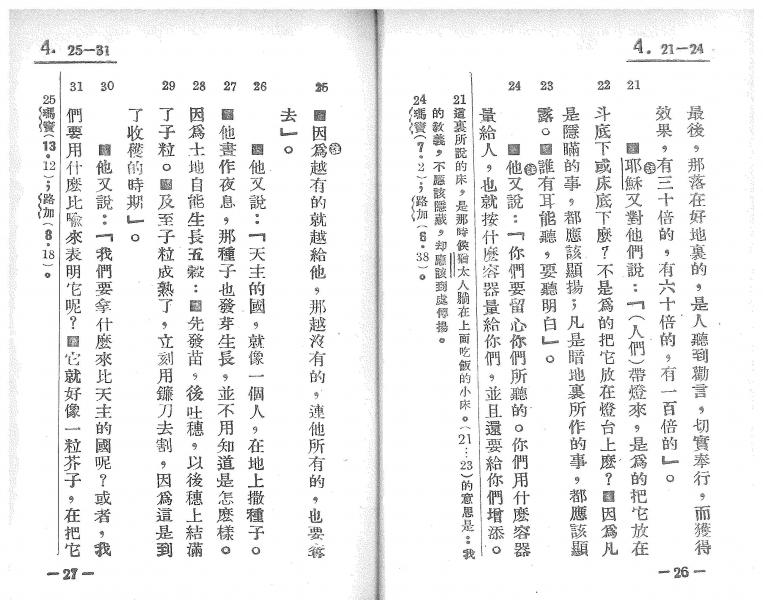 4. 21—24
最後，那落在好地裏的，是人聽到勸言，切實奉行，而獲得
效果，有三十倍的，有六十倍的，有一百倍的」。
21 耶穌又對他們說：「（人們）帶燈來，是爲的把它放在
斗底下或床底下麼？不是爲的把它放在燈台上麼？因爲凡
22
是隱瞞的事，都應該顯揚；凡是暗地裏所作的事，都應該顯
露。誰有耳能聽，要聽明白」。
23
24 他又說：「你們要留心你們所聽的。你們用什麼容器
量給人，也就按什麼容器量給你們，並且還要給你們增添。
21這裏所說的床，是那時侯猶太人躺在上面吃飯的小床。(21…23)的意思是：我
的教義，不應該隱藏，却應該到處傳揚。
24瑪竇(7·2)；路加(6·38)。
—26—
4. 25—31
25 因爲越有的就越給他，那越沒有的，連他所有的，也要奪
去」。
26 他又說：「天主的國，就像一個人，在地上撒種子。
27 他晝作夜息，那種子也發芽生長，並不用知道是怎麼樣。
28 因爲土地自能生長五穀：先發苗，後吐穗，以後穗上結滿
29 了子粒。及至子粒成熟了，立刻用鐮刀去割，因爲這是到
了收穫的時期」。
30 他又說：「我們要拿什麼來比天主的國呢？或者，我
31 們要用什麼比喩來表明它呢？它就好像一粒芥子，在把它
25瑪竇(13·12)；路加(8·18)。
—27—